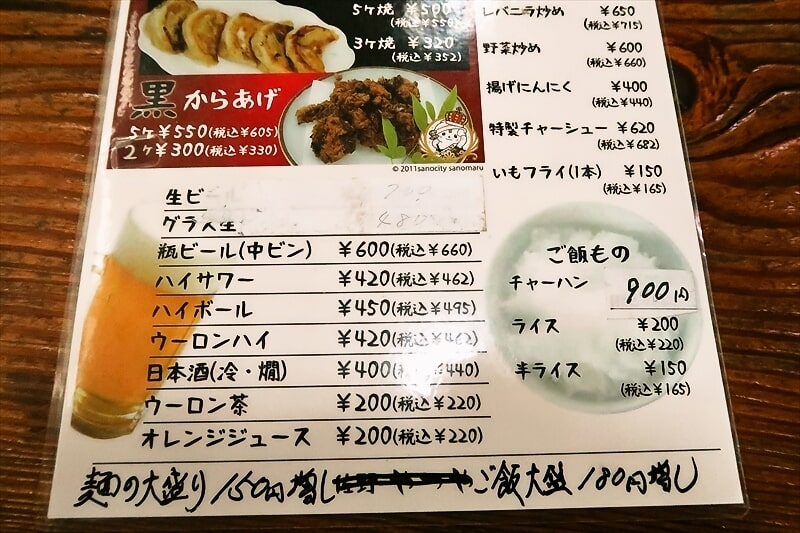 5ヶ焼 ¥500
(税込¥550)
3ヶ焼 ¥320
(税込¥352)
黒からあげ
5ヶ¥550(税込¥605)
2ヶ¥300(税込¥330)
© 2011sanocity sanomaru
レバニラ炒め ¥650
(税込¥715)
野菜炒め ¥600
(税込¥660)
揚げにんにく ¥400
(税込¥440)
特製チャーシュー ¥620
(税込¥682)
いもフライ(1本) ¥150
(税込¥165)
生ビ
グラス生 480
瓶ビール(中ビン) ¥600(税込¥660)
ハイサワー ¥420(税込¥462)
ハイボール ¥450(税込¥495)
ウーロンハイ ¥420(税込¥462)
日本酒(冷・燗) ¥400(税込¥440)
ウーロン茶 ¥200(税込¥220)
オレンジジュース ¥200(税込¥220)
ご飯もの
チャーハン 900円
ライス ¥200
(税込¥220)
半ライス ¥150
(税込¥165)
麺の大盛り150円増し ご飯大盛180円増し